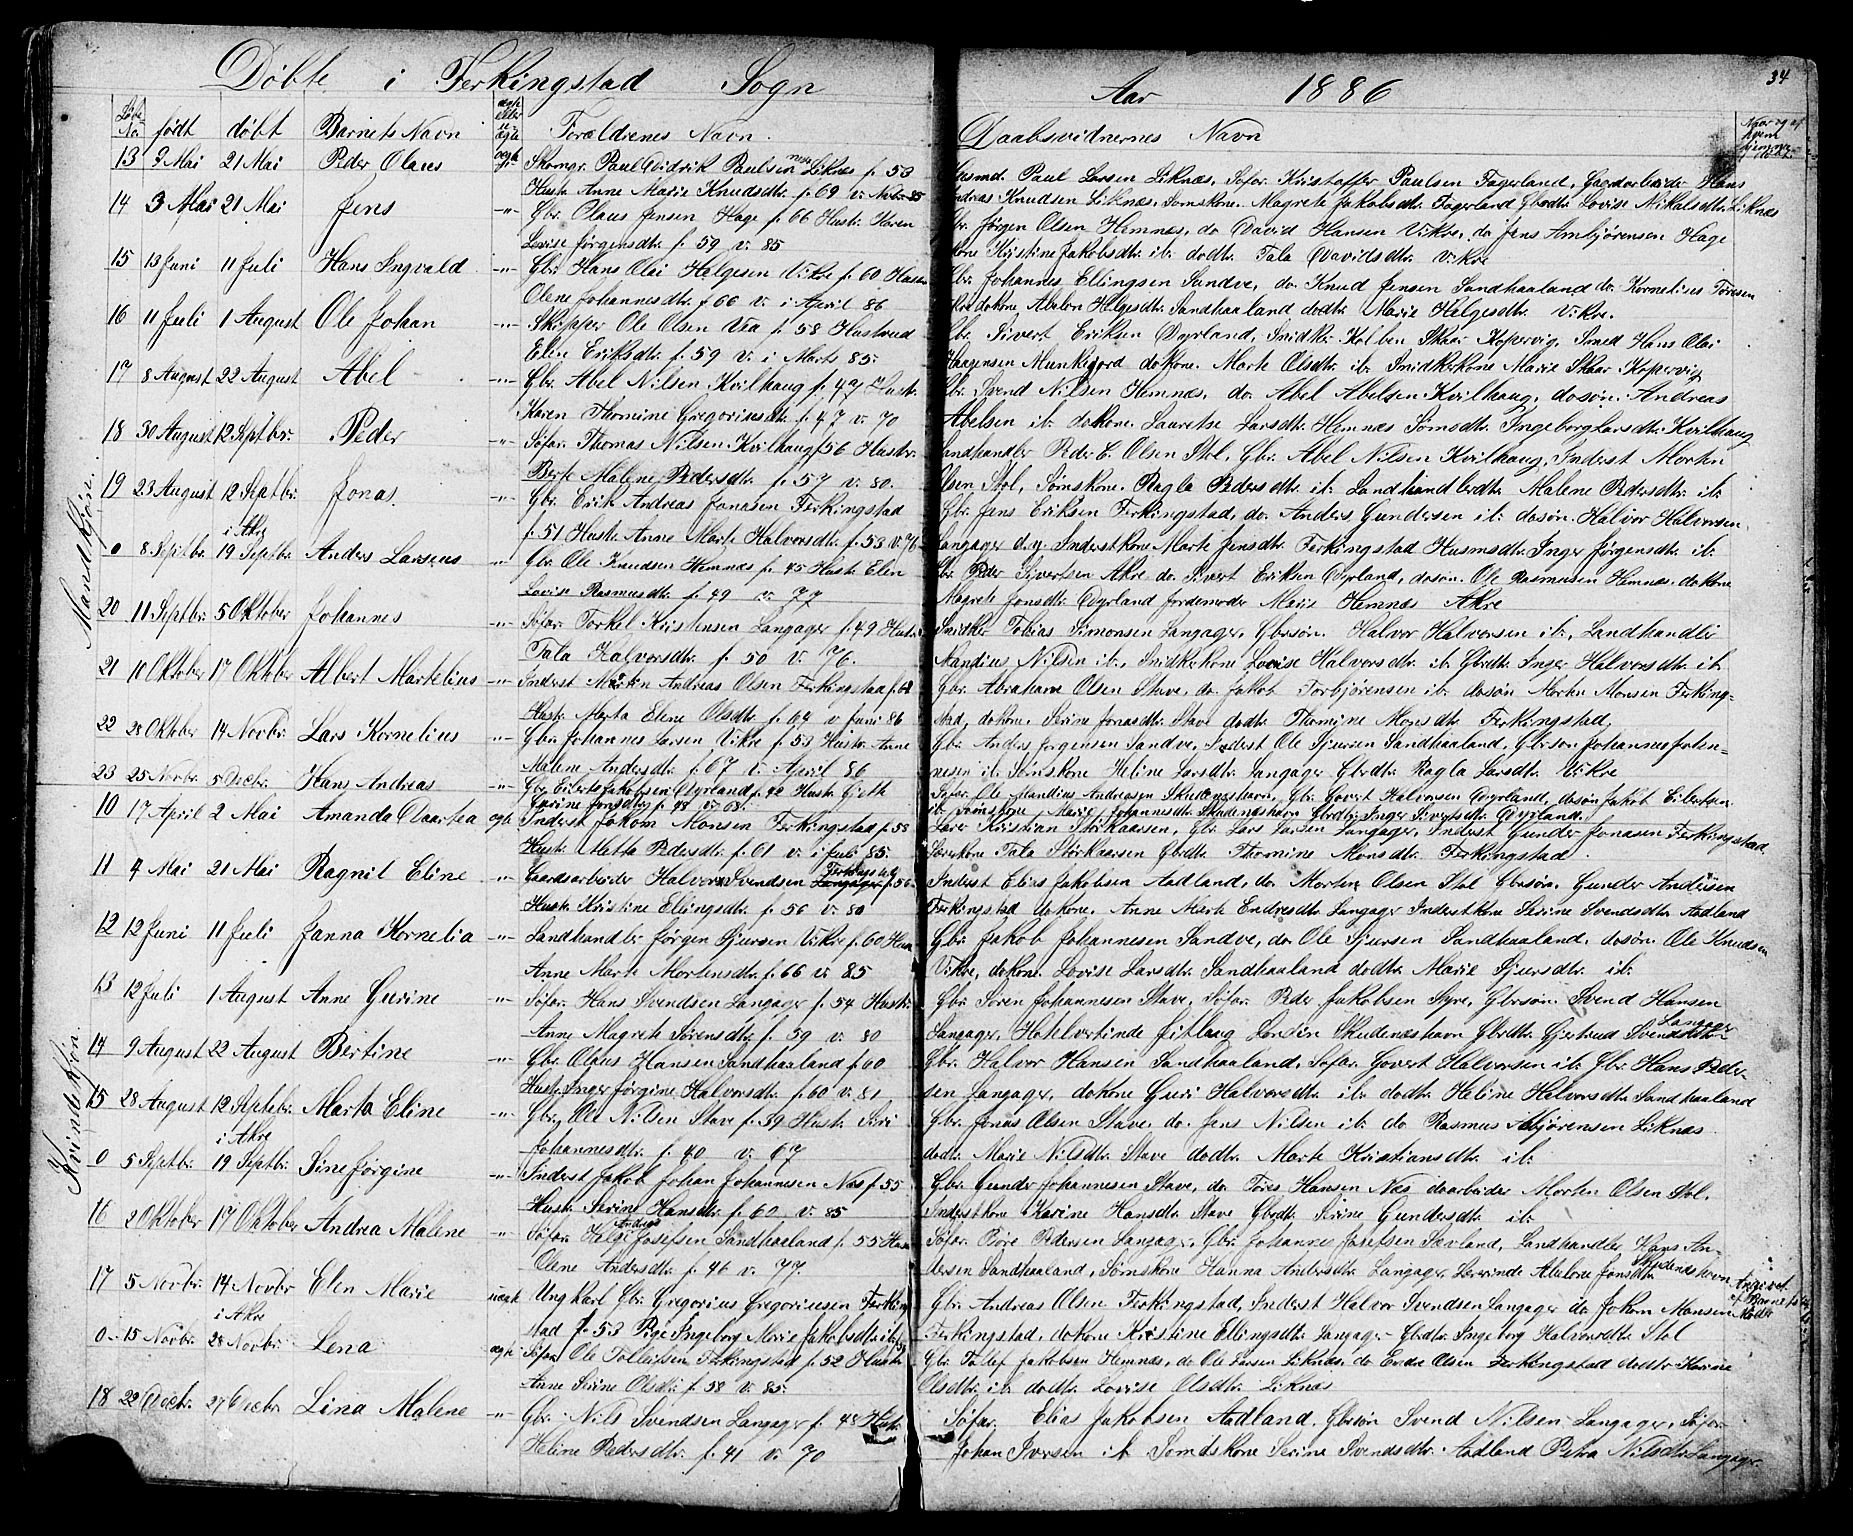 Døbte i Ferkingstad Sogn Aar 1886
34
Løbe No. født døbt Barnets Navn ægte eller uægte Forældrenes Navn. Daabsvidnernes Navn
Mandkjøn.
13 9 Mai 21 Mai Peder Olaus ægte Skomgr. Paul Didrik Paulsen Liknæs f. 53
Hustr. Anne Marie Knudsdtr. f. 69 v. Novbr. 85
Husmd. Paul Larsen Liknæs, Søfar. Kristoffer Paulsen Fagerland, Gaardarbeider Hans
Andreas Knudsen Liknæs, Sømskone. Magrete Jakobsdtr. Fagerland Gbrdtr. Lovise Nikolaisdtr. Liknæs
14 3 Mai 21 Mai Jens -"- Gbr. Olaus Jensen Hage f. 66 Hustr. Karen
Lovise Jørgensdtr. f. 59 v. 85
Gbr. Jørgen Olsen Hemnæs, do David Hansen Vikre, do Jens Ambjørensen Hage
Kone Kristine Jakobsdtr. ib. dodtr. Tala Davidsdtr. Vikre
15 13 Juni 11 Juli Hans Ingvald -"- Gbr. Hans Olai Helgesen Vikre f. 60 Hustr.
Olene Johannesdtr. f. 66 v. i April 86
Gbr. Johannes Ellingsen Sandve, do. Knud Jensen Sandhaaland do. Kornelius Toresen
Vikre dokone Abelon Helgesdtr. Sandhaaland dodtr. Marie Helgesdtr. Vikre.
16 11 Juli 1 August Ole Johan -"- Skipper Ole Olsen Vea f. 58 Hustrued
Elen Eriksdtr. f. 59 v. i Marts 85.
Gbr. Sivert Eriksen Dyrland, Snidkr. Kolben Skaar Kopervig, Smed Hans Olai
Haagensen Munkejord dokone. Marte Olsdtr. ib. Snidkerkone Marie Skaar Kopervig
17 8 August 22 August Abel -"- Gbr. Abel Nilsen Kvilhaug f. 47 Hustr.
Karen Thomine Gregoriusdtr. f. 47 v. 70
Gbr. Svend Nilsen Hemnæs, do. Abel Abelsen Kvilhaug, dosøn. Andreas
Abelsen ib. dokone. Lauretse Larsdtr. Hemnæs Sømsdtr. Ingeborg Larsdtr. Kvilhaug
18 30 August 12 Septbr. Peder -"- Søfar. Thomas Nilsen Kvilhaug f. 56 Hustr.
Berte Malene Pedersdtr. f. 59 v. 80.
Landhandler Peder C. Olsen Stol, Gbr. Abel Nilsen Kvilhaug, Inderst Morten
Olsen Stol, Sømskone. Ragla Pedersdtr. ib. Landhandlerdtr. Malene Pedersdtr. ib.
19 23 August 12 Septbr. Jonas. -"- Gbr. Erik Andreas Jonasen Ferkingstad
f. 51 Hustr. Anne Marte Halvorsdtr. f. 53 v. 76
Gbr. Jens Eriksen Ferkingstad, do. Anders Gundersen ib. dosøn. Halvor Halvorsen
Langager d.y. Inderstkone Marte Jensdtr. Ferkingstad Husmsdtr. Inger Jørgensdtr. ib.
i Akre
0 8 Septbr. 19 Septbr. Anders Larseus -"- Gbr. Ole Knudsen Hemnæs f. 45 Hustr. Elen
Lovise Rasmusdtr. f. 49 v. 77
Gbr. Peder Sivertsen Akre do. Sivert Eriksen Dyrland, dosøn. Ole Rasmusen Hemnæs. dokone
Magrete Jonsdtr. Dyrland Jordemoder Marie Hemnæs Akre
20 11 Septbr. 5 Oktober Johannes -"- Søfar. Torkel Kristensen Langager f. 49 Hustr.
Tala Halvorsdtr. f. 50 v. 76.
Snidker Tobias Simonsen Langager, Gbrsøn. Halvor Halvorsen ib., Landhandler
Mandius Nilsen ib., Snidkerkone Lovise Halvorsdtr. ib. Gbrdtr. Inger Halvorsdtr. ib
21 10 Oktober 17 Oktober Albert Martelius -"- Inderst Morten Andreas Olsen Ferkingstad f. 62
Hustr. Marta Elene Olsdtr. f. 64 v. Juni 86
Gbr. Abraham Olsen Stave, do. Jakob Torbjørensen ib. dosøn Morten Monsen Ferking-
stad, dokone. Serine Jonasdtr. Stave dodtr. Thomine Monsdtr. Ferkingstad,
22 28 Oktober 14 Novbr. Lars Kornelius -"- Gbr. Johannes Larsen Vikre f. 53 Hustr. Anne
Malene Andersdtr. f. 67 v. April 86
Gbr. Anders Jørgensen Sandve, Inderst Ole Sjursen Sandhaaland, Gbrsøn Johannes Johan-
nesen ib. Sømskone Heline Larsdtr. Langager Gbrdtr. Ragla Larsdtr. Vikre
23 25 Novbr. 5 Decbr. Hans Andreas -"- Gbr. Eilert Jakobsen Dyrland f. 42 Hustr. Guth.
Serine Jonsdtr. f. 48 v. 68.
Søfar. Ole Mandius Andreasen Skudeneshavn, Gbr. Govert Halvorsen Dyrland, dosøn Jakob Eilertsen
ib. Sømskone Marie Johannesdtr. Skudeneshavn Gbrdtr. Inger Sivertsdtr. Dyrland.
Kvindekjøn.
10 17 April 2 Mai Amanda Daartea ægte Inderst Jakom Monsen Ferkingstad f. 58
Hustr. Metta Pedersdtr. f. 61 v. i Juli 85.
Lærer Kristian Storkaarsen, Gbr. Lars Larsen Langager, Inderst Gunder Jonasen Ferkingstad
Lærerkone Tala Storkaarsen Gbrdtr. Thomine Monsdtr. Ferkingstad.
11 4 Mai 21 Mai Ragnil Eline -"- Gaardsarbeider Halvor Svendsen Langager Ferkingstad f. 56
Hustr. Kristine Ellingsdtr. f. 56 v. 80
Inderst Elias Jakobsen Aadland, do. Morten Olsen Stol Gbrsøn. Gunder Andersen
Ferkingstad dokone. Anne Marte Endresdtr. Langager Inderstkone Serine Svendsdtr. Aadland
12 12 Juni 11 Juli Janna Kornelia -"- Landhandlr. Jørgen Sjursen Vikre f. 60 Hustr.
Anne Marte Mortensdtr. f. 66 v. 85
Gbr. Jakob Johannesen Sandve, do. Ole Sjursen Sandhaaland. dosøn. Ole Knudsen
Vikre, dokone. Lovise Larsdtr. Sandhaaland dodtr. Marie Sjursdtr. ib.
13 12 Juli 1 August Anne Gurine -"- Søfar. Hans Svendsen Langager f. 54 Hustr.
Anne Magrete Sørensdtr. f. 59 v. 80
Gbr. Søren Johannesen Stave, Søfar. Peder Jakobsen Syre, Gbrsøn. Svend Hansen
Langager, Skudenæshavn Gbrdtr. Gjertrud Svendsdtr. Langager
14 9 August 22 August Bertine -"- Gbr. Olaus Hansen Sandhaaland f. 60
Hustr. Inger Jørgine Halvorsdtr. f. 60 v. 81
Gbr. Halvor Hansen Sandhaaland, Søfar. Govert Halvorsen ib. Gbr. Hans Peder-
sen Langager, dokone Guri Halvorsdtr. ib. dodtr. Heline Halvorsdtr. Sandhaaland
15 28 August 12 Septebr. Marta Eline -"- Gbr. Ole Nilsen Stave f. 39 Hustr. Siri
Johannesdtr. f. 40 v. 67
Gbr. Jonas Olsen Stave, do. Jens Nilsen ib. do. Rasmus Abjørensen Liknæs
dodtr. Marie Nilsdtr. Stave dodtr. Marte Kristiansdtr. ib.
i Akre
0 5 Septbr. 19 Septbr. Sine Jørgine -"- Inderst Jakob Johan Johannesen Næs f. 55
Hustr. Serine Hansdtr. f. 60 v. 85
Gbr. Gunder Johannesen Stave, do. Tores Hansen Næs doarbeider Morten Olsen Stol,
Inderstkone Karine Hansdtr. Stave Gbrdtr. Serine Gundersdtr. ib.
16 2 Oktober 17 Oktober Andrea Malene -"- Søfar. Helge Andreas Josefsen Sandhaaland f. 55 Hustr.
Olene Andersdtr. f. 46 v. 77.
Søfar. Bore Pedersen Langager, Gbr. Johannes Josefsen Sævland, Landhandler Hans An-
dersen Sandhaaland, Sømskone Hanna Andersdtr. Langager, Lærerinde Abelone Jonsdtr. Skudeneshavn
17 5 Novbr. 14 Novbr Elen Marie uægte Ungkarl Gbr. Gregorius Gregoriussen Ferking
stad f. 53 Pige Ingeborg Marie Jakobsdtr. ib. f. 59
Gbr. Andreas Olsen Ferkingstad, Inderst Halvor Svendsen Langager do. Jakom Monsen
Ferkingstad, dokone Kristine Ellingsdtr. Langager - Gbrdtr. Ingeborg Halvorsdtr. Stol
Angivet af Barnets Moder
i Akre
0 15 Novbr. 28 Novbr. Lena ægte Søfar. Ole Tolleifsen Ferkingstad f. 52 Hustr.
Anne Serine Olsdtr. f. 58 v. 85.
Gbr. Tollef Jakobsen Hemnæs, do Ole Larsen Liknæs, do Endre Olsen Ferkingstad dodtr. Karine
Olsdtr. ib. dodtr. Lovise Olsdtr. Liknæs
18 22 Decbr. 27 Decbr. Lina Malene -"- Gbr. Nils Svendsen Langager f. 48 Hustr.
Heline Pedersdtr. f. 41 v. 70
Søfar. Elias Jakobsen Aadland, Gbrsøn Svend Nilsen Langager, Søfar.
Johan Iversen ib. Sømdskone Serine Svendsdtr. Aadland Petra Nilsdtr. Langager.